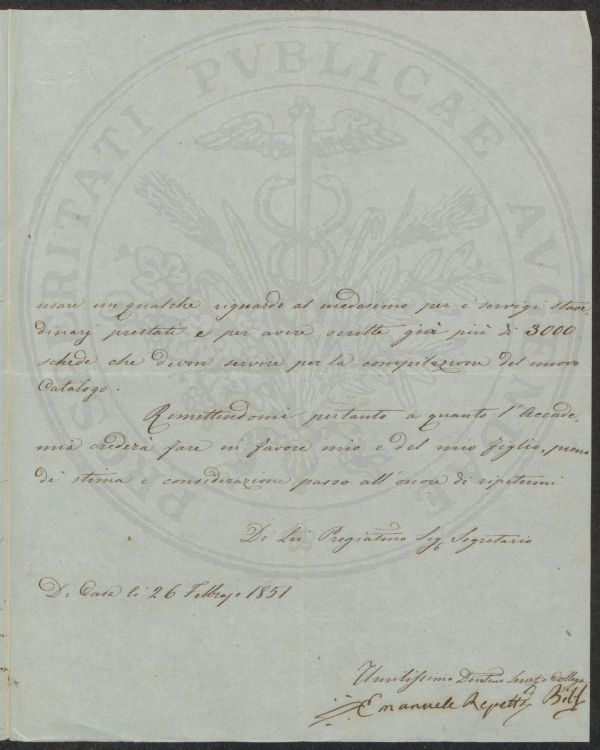 usare un qualche riguardo al medesimo per i servigi straor
dinarj prestati e per avere scritte già più di 3000
schede che devon servire per la compilazione del nuovo
Catalogo.
Rimettendomi pertanto a quanto l'Accade-
mia crederà fare in favore mio e del mio figlio, pieno
di stima e considerazione passo all'onore di ripetermi
Di Lei Pregiatmo Sig. Segretario
Di Casa li 26 Febbrajo 1851
Umilissimo Devmo Collega
Emanuele Repetti Bibl
PROSPERITATI PVBLICAE AVGENDAE